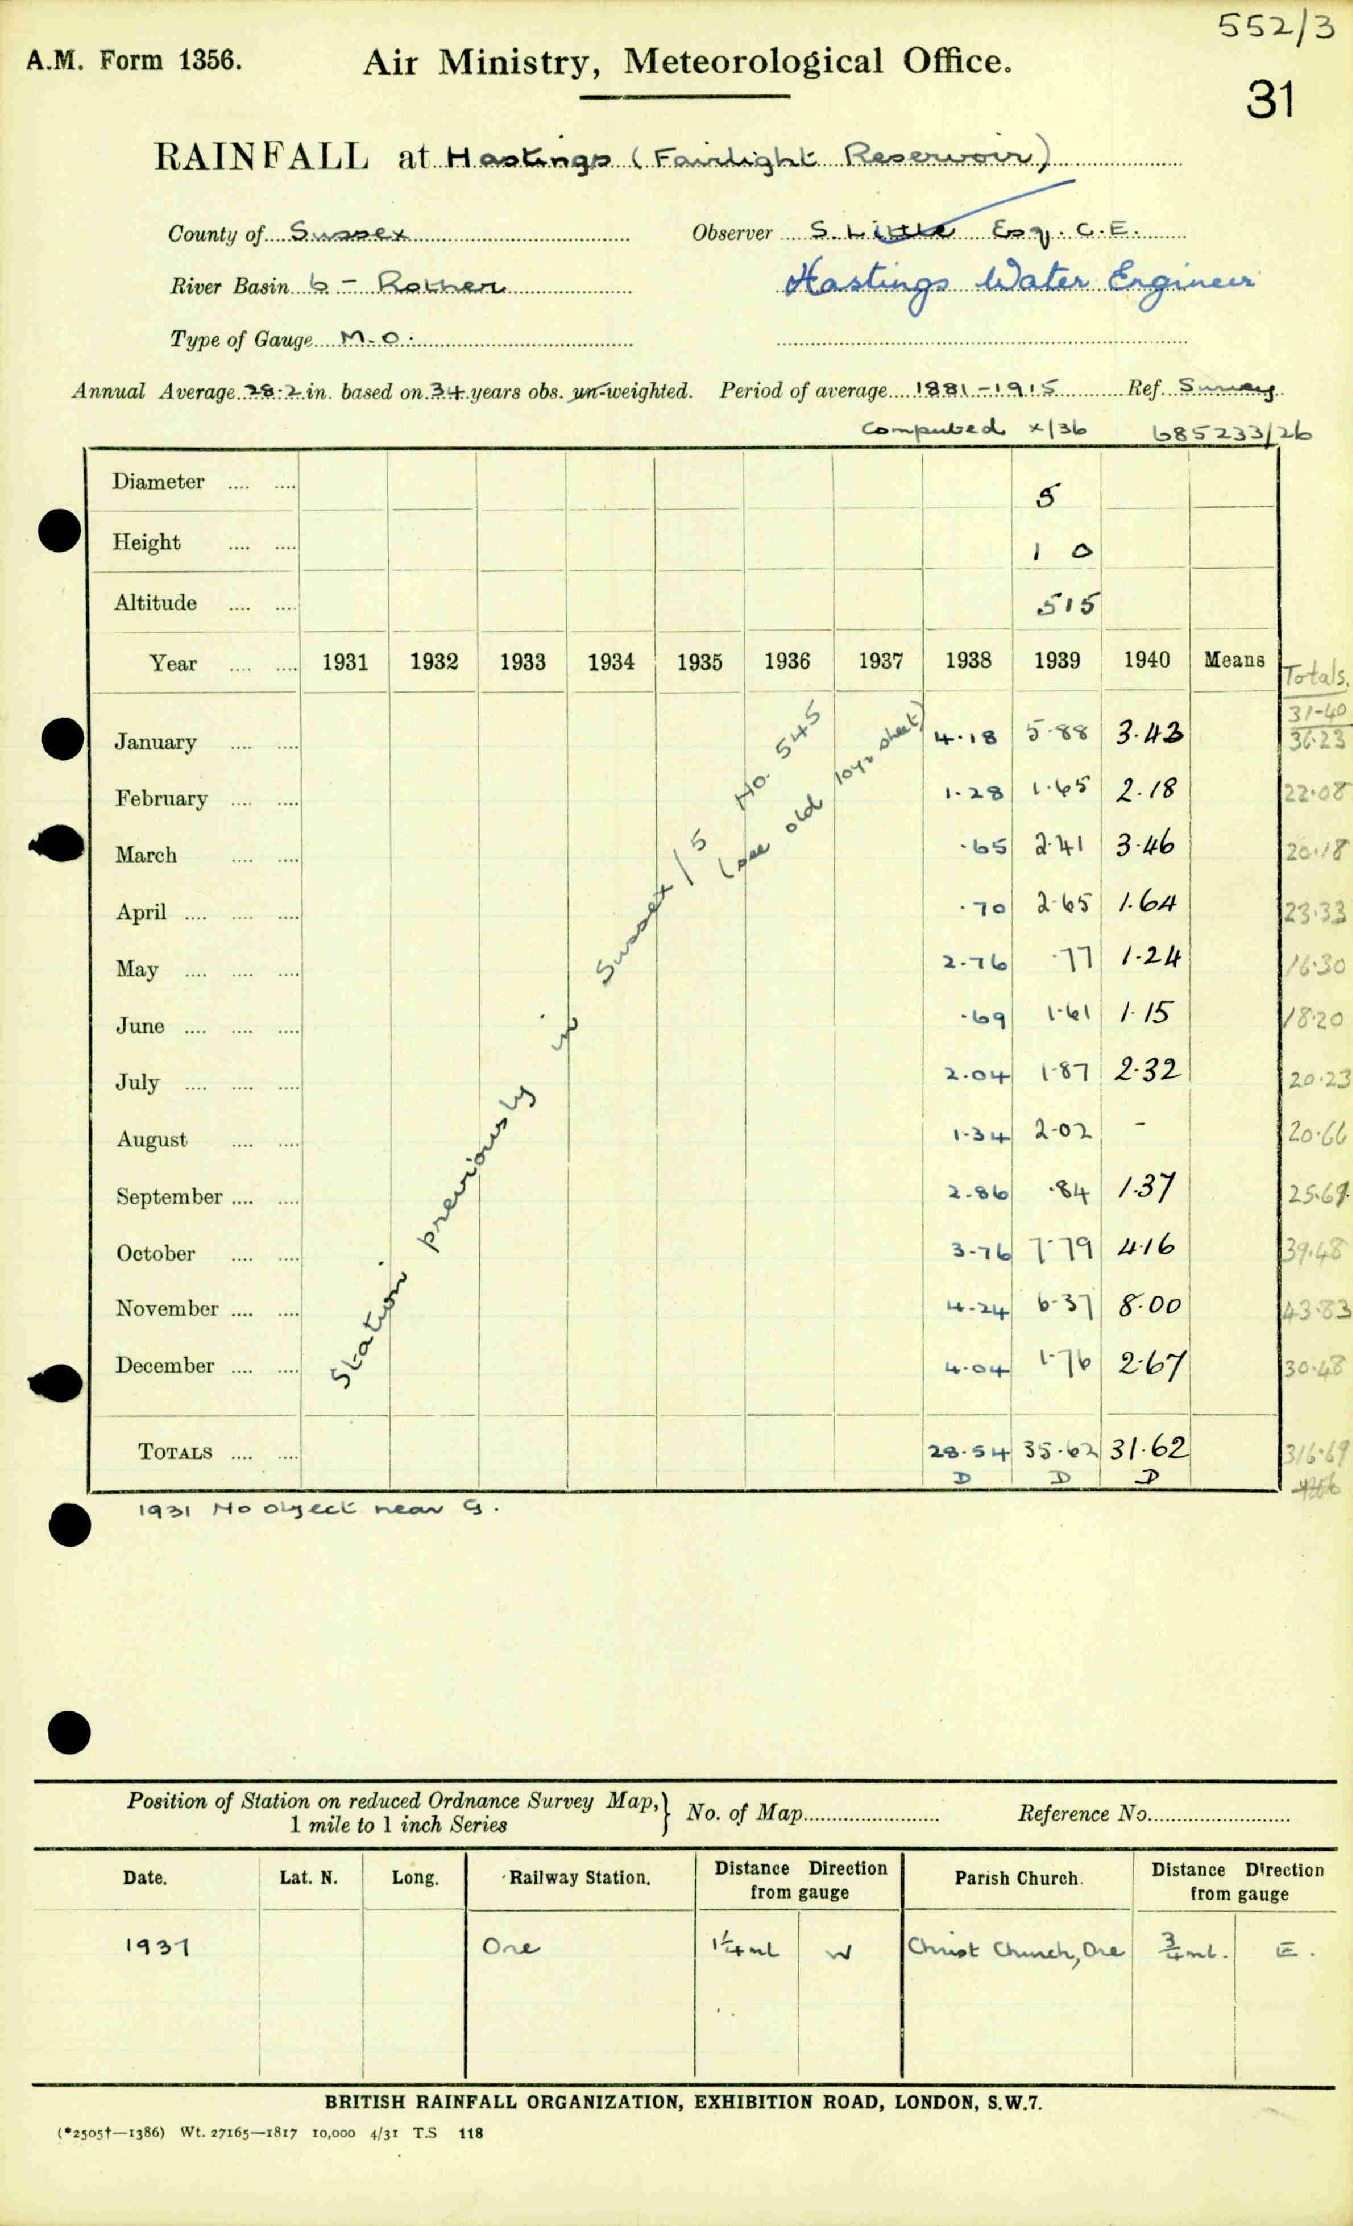 552/3
A.M. Form 1356. Air Ministry, Meteorological Office.
31
RAINFALL at Hastings (Fairlight Reservoir)
County of Sussex Observer S. Little Esq. C.E.
River Basin 6 - Rother Hastings Water Engineer
Type of Gauge M.O.
Annual Average 28.2 in. based on 34 years obs. un-weighted. Period of average 1881-1915 Ref. Survey
Computed x/36 685233/26
Diameter .... .... 5
Height .... .... 1 0
Altitude .... .... 515
Year .... .... 1931 1932 1933 1934 1935 1936 1937 1938 1939 1940 Means Totals.
31-40
January .... .... 4.18 5.88 3.43 36.23
February .... .... 1.28 1.65 2.18 22.08
March .... .... .65 2.41 3.46 20.18
April .... .... .... .70 2.65 1.64 23.33
May .... .... .... 2.76 .77 1.24 16.30
June .... .... .... .69 1.61 1.15 18.20
July .... .... .... 2.04 1.87 2.32 20.23
August .... .... 1.34 2.02 - 20.66
September .... .... 2.86 .84 1.37 25.69
October .... .... 3.76 7.79 4.16 39.48
November .... .... 4.24 6.37 8.00 43.83
December .... .... 4.04 1.76 2.67 30.48
Station previously in Sussex/5 No. 545
(see old 10yr sheet)
TOTALS .... .... 28.54 35.62 31.62 316.69
D D D
1931 No object near G.
Position of Station on reduced Ordnance Survey Map,} No. of Map Reference No.
1 mile to 1 inch Series
Date. Lat. N. Long. Railway Station. Distance Direction from gauge Parish Church. Distance Direction from gauge
1937 Ore 1¼ ml W Christ Church, Ore ¾ ml. E.
BRITISH RAINFALL ORGANIZATION, EXHIBITION ROAD, LONDON, S.W.7.
(*2505†—1386) Wt. 27165—1817 10,000 4/31 T.S 118